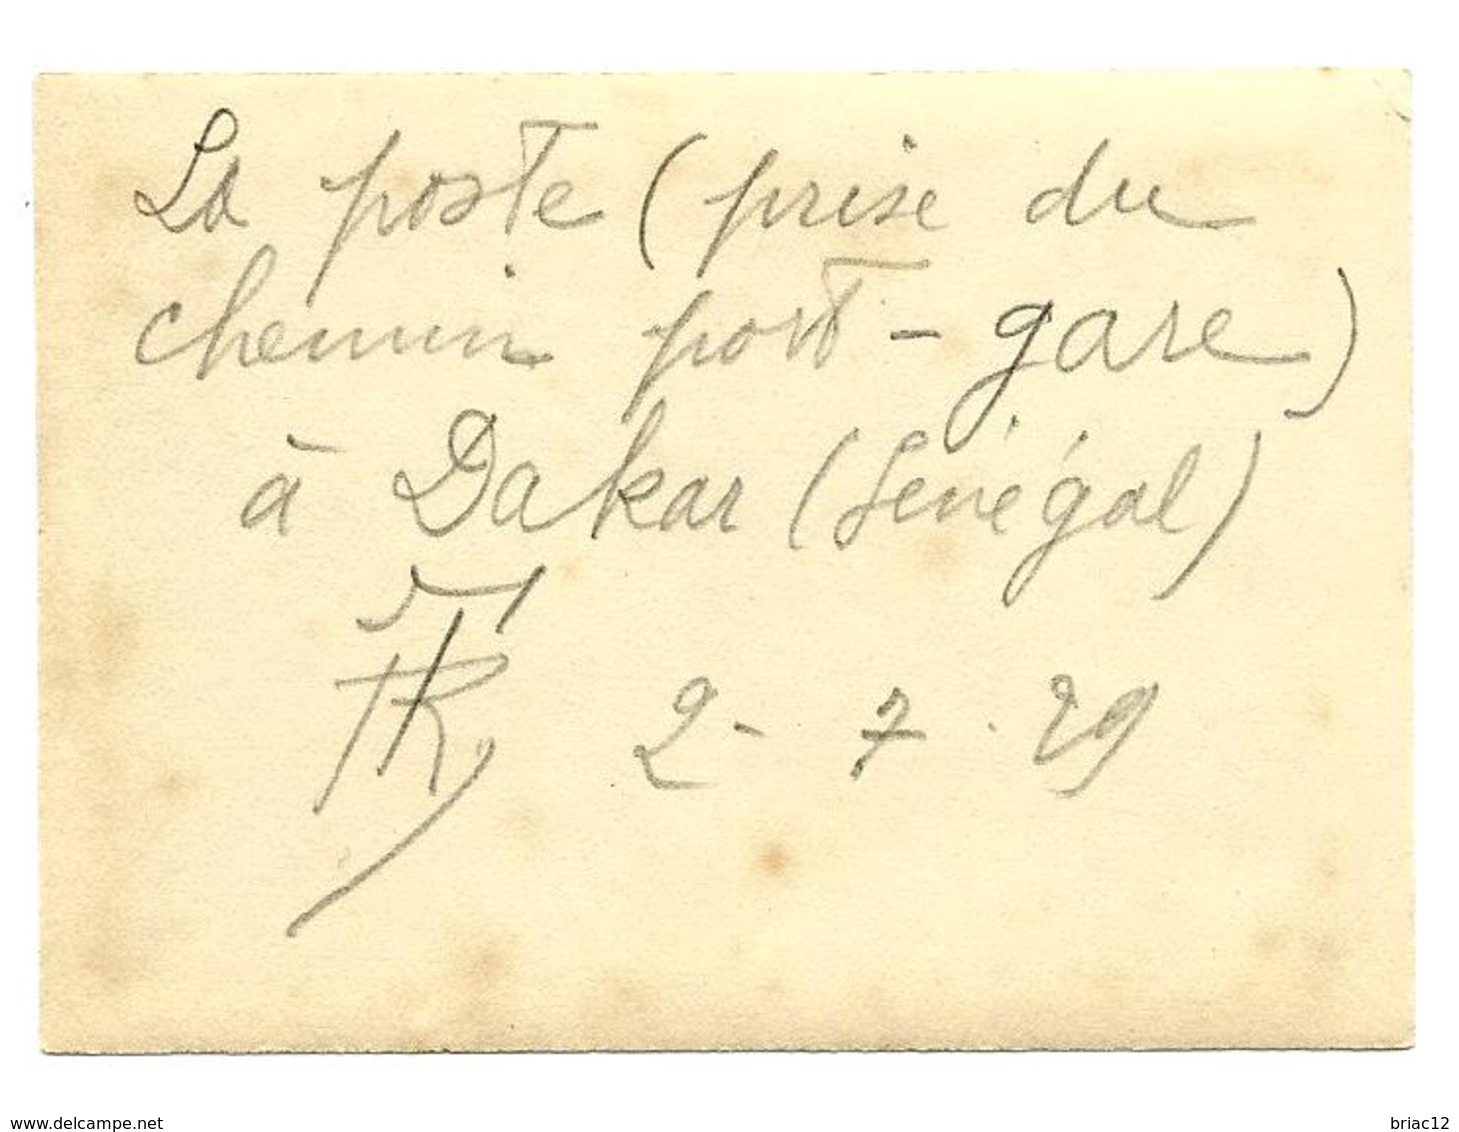 La poste (prise du
chemin port - gare)
à Dakar (Sénégal)
2 - 7 . 29
www.delcampe.net
briac12